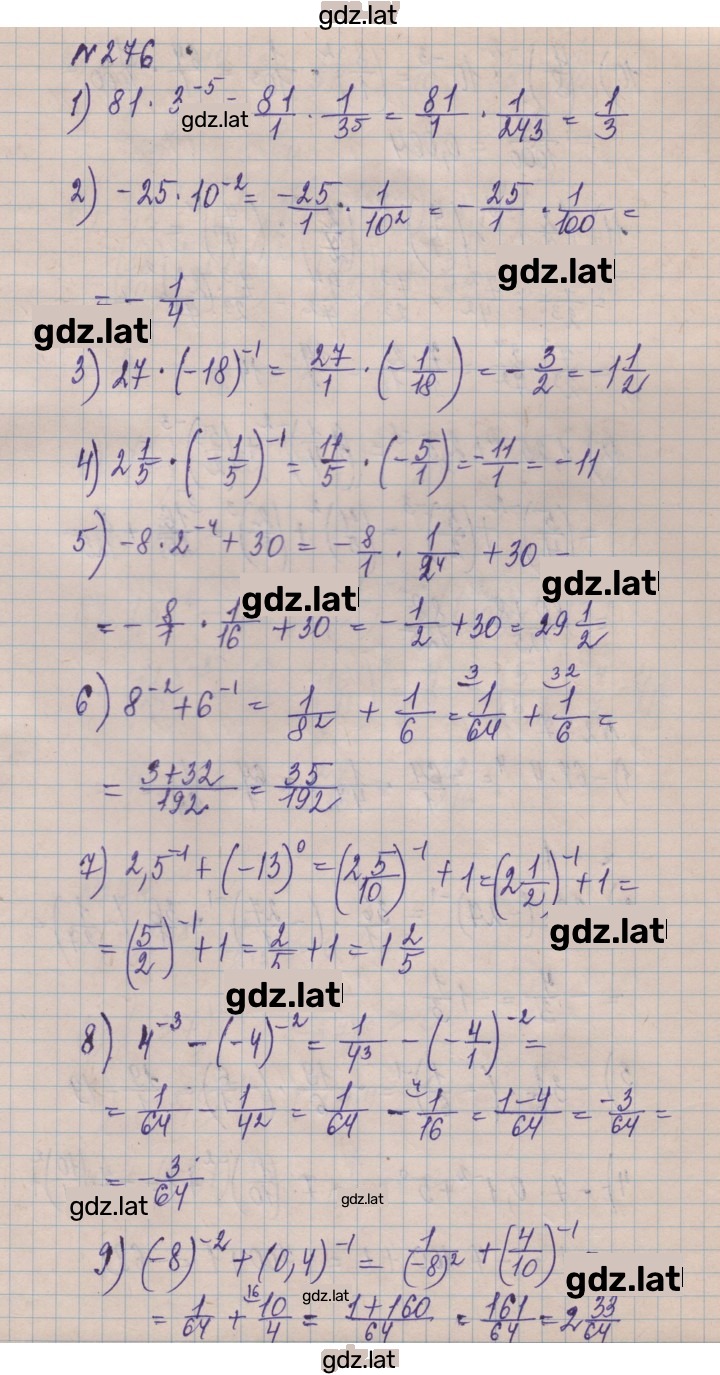 gdz.lat
№276
1) 81 · 3^-5 = 81/1 · 1/3^5 = 81/1 · 1/243 = 1/3
gdz.lat
2) -25 · 10^-2 = -25/1 · 1/10^2 = - 25/1 · 1/100 =
gdz.lat
= - 1/4
gdz.lat
3) 27 · (-18)^-1 = 27/1 · (- 1/18) = - 3/2 = -1 1/2
4) 2 1/5 · (- 1/5)^-1 = 11/5 · (- 5/1) = -11/1 = -11
5) -8 · 2^-4 + 30 = - 8/1 · 1/2^4 + 30 =
gdz.lat
gdz.lat
= - 8/1 · 1/16 + 30 = - 1/2 + 30 = 29 1/2
6) 8^-2 + 6^-1 = 1/8^2 + 1/6 = ³1/64 + ³²1/6 =
= 3+32/192 = 35/192
7) 2,5^-1 + (-13)^0 = (2 5/10)^-1 + 1 = (2 1/2)^-1 + 1 =
gdz.lat
= (5/2)^-1 + 1 = 2/5 + 1 = 1 2/5
gdz.lat
8) 4^-3 - (-4)^-2 = 1/4^3 - (- 4/1)^-2 =
= 1/64 - 1/4^2 = 1/64 - ⁴1/16 = 1-4/64 = -3/64 =
= - 3/64
gdz.lat
gdz.lat
9) (-8)^-2 + (0,4)^-1 = 1/(-8)^2 + (4/10)^-1
gdz.lat
gdz.lat
= 1/64 + ¹⁶10/4 = 1+160/64 = 161/64 = 2 33/64
gdz.lat